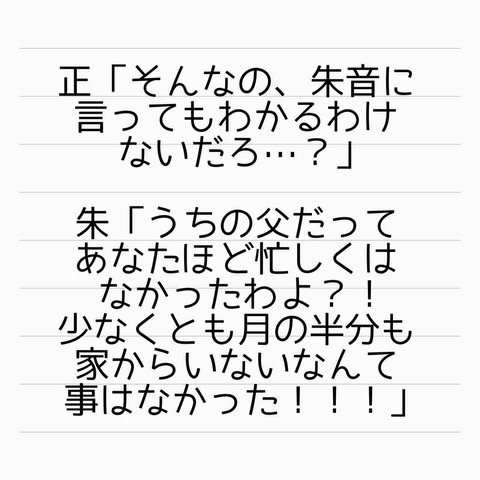 正「そんなの、朱音に
言ってもわかるわけ
ないだろ…？」
朱「うちの父だって
あなたほど忙しくは
なかったわよ？！
少なくとも月の半分も
家からいないなんて
事はなかった！！！」